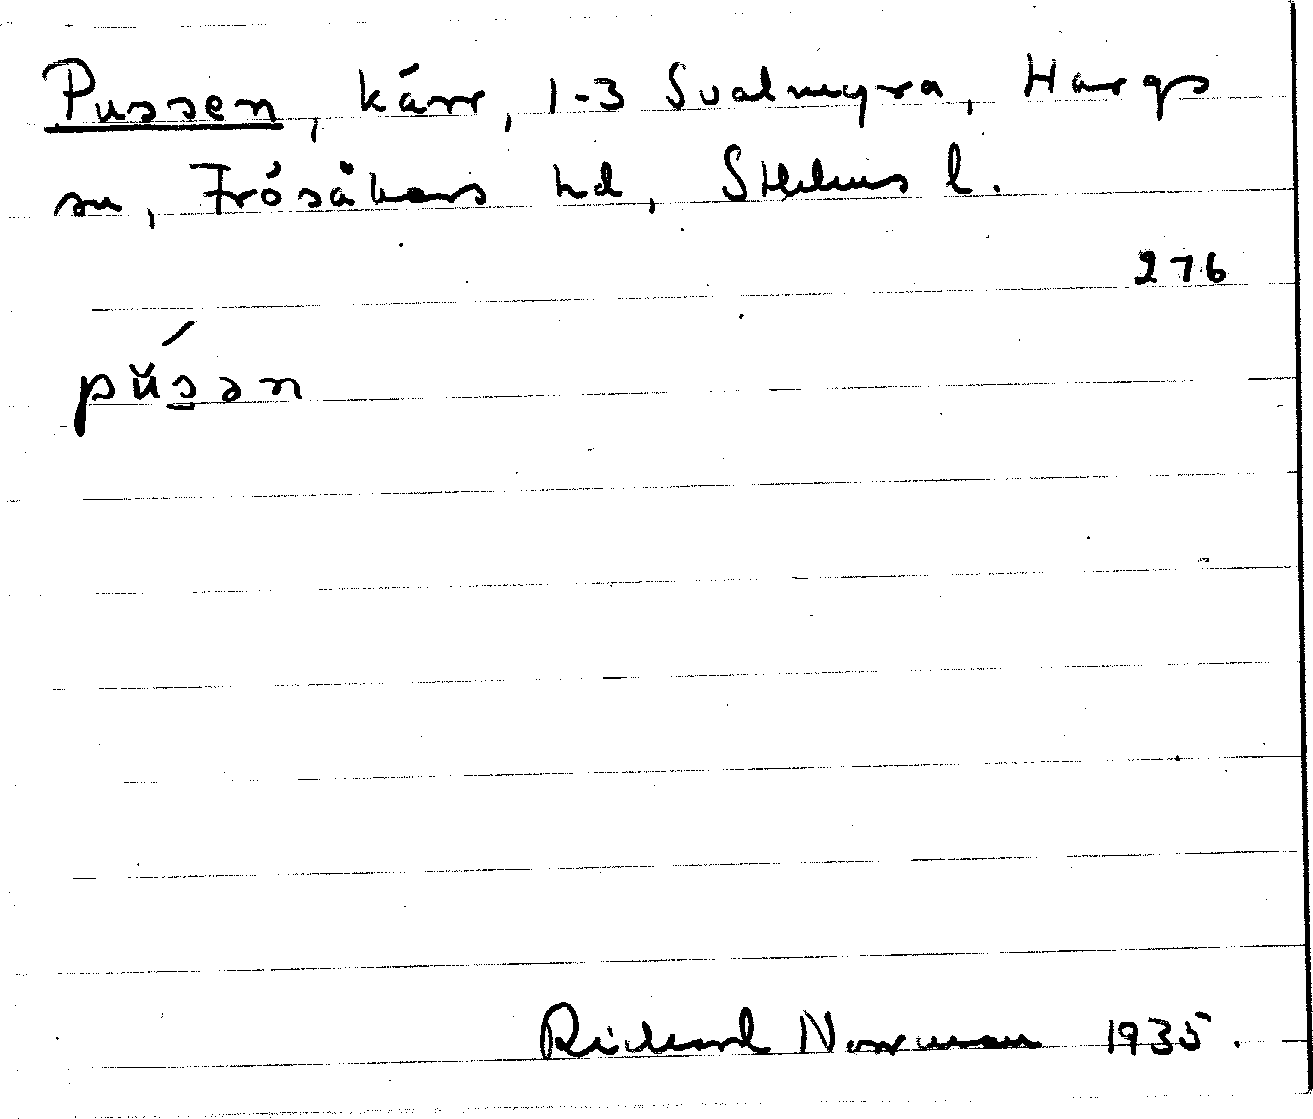 Pussen, kärr, 1-3 Svalmyra, Hargs
sn, Frösåkers hd, Sthlms l.
276
pŭs̲ən
Richard Norrman 1935.